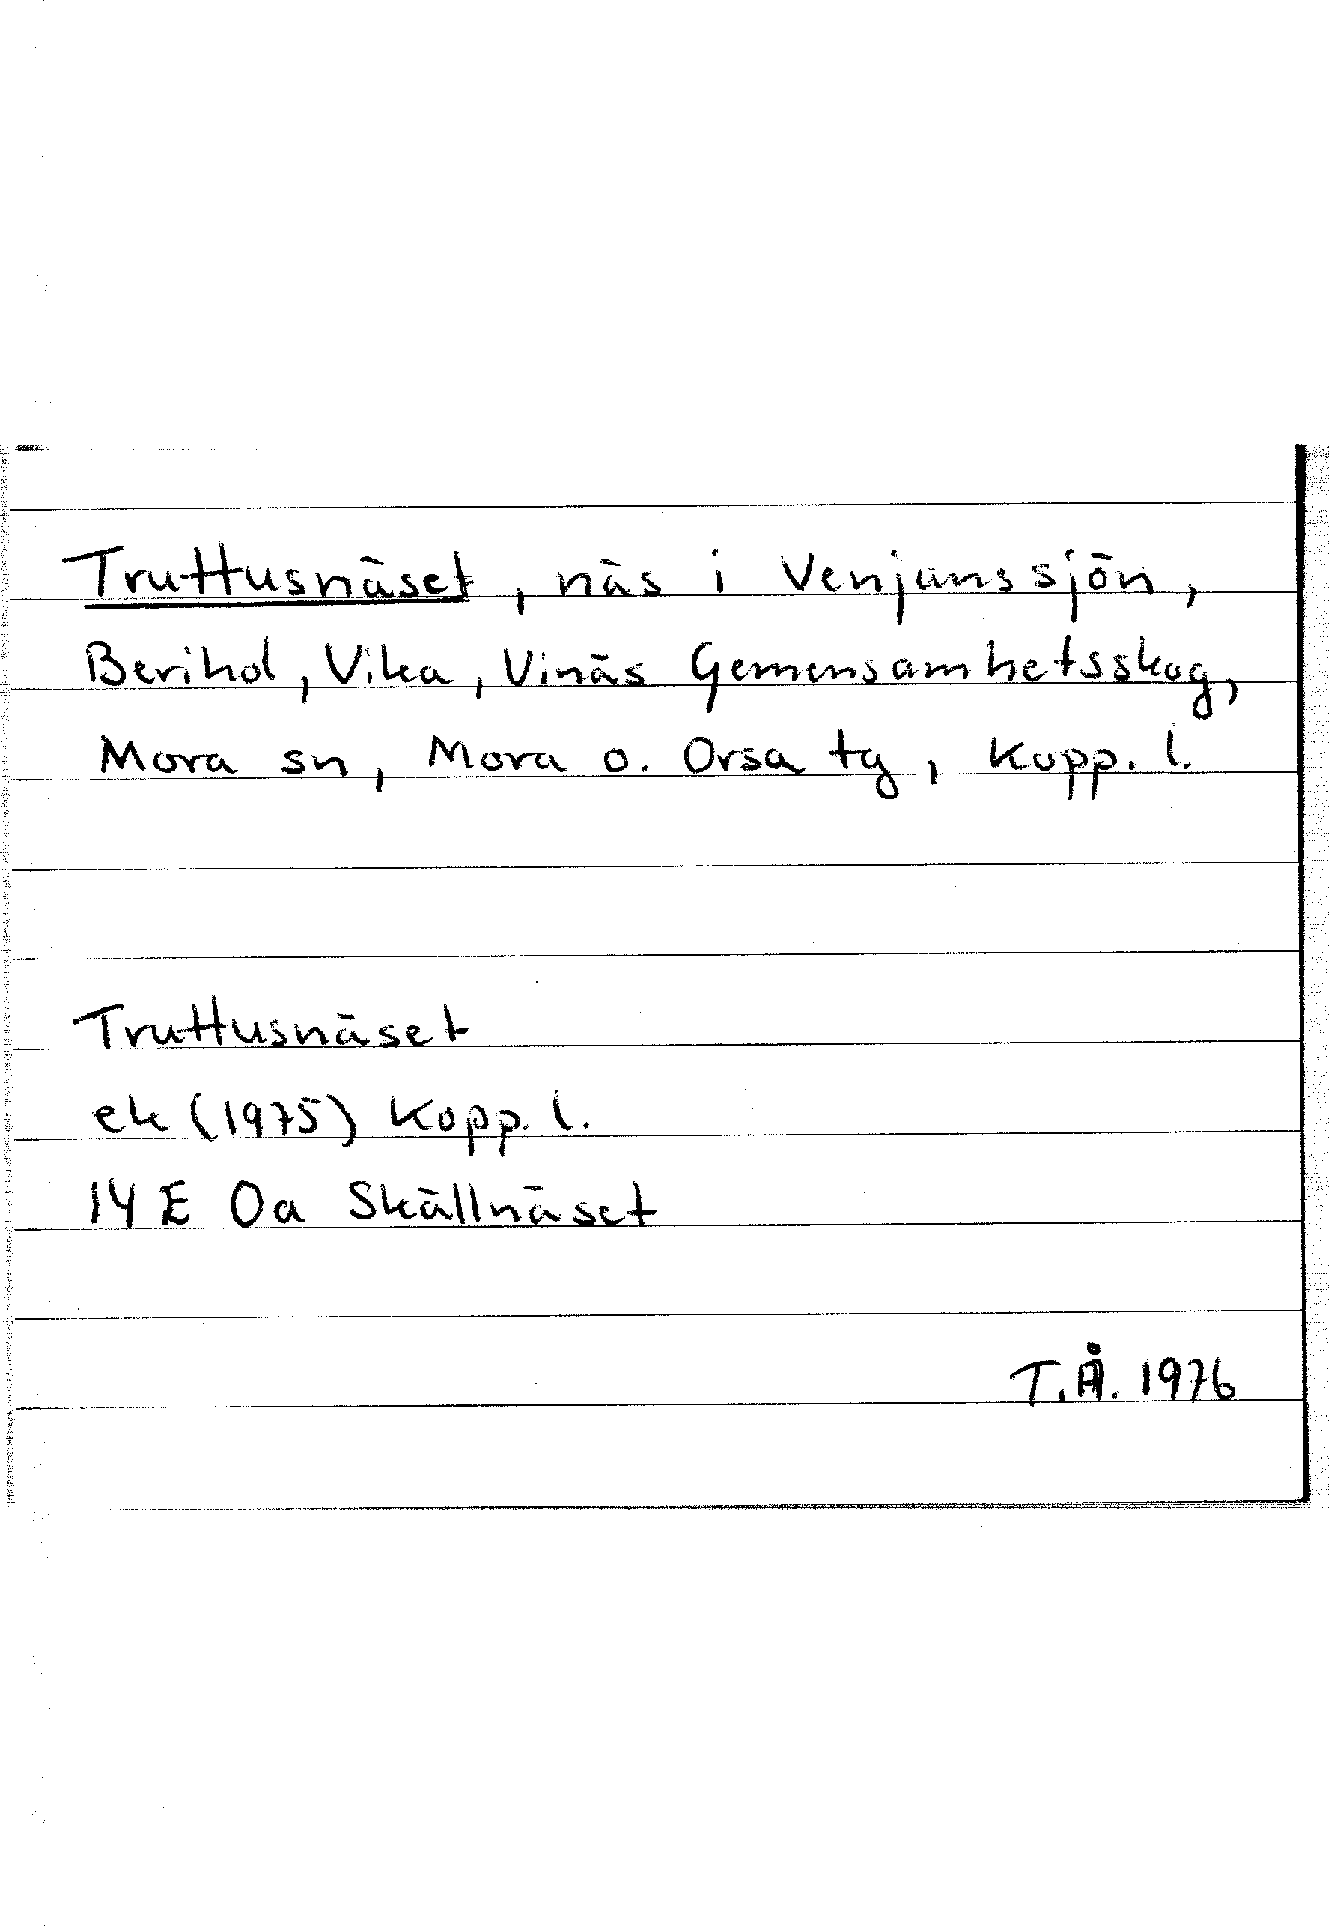 Truttusnäset, näs i Venjanssjön,
Berihol, Vika, Vinäs Gemensamhetsskog,
Mora sn, Mora o. Orsa tg, Kopp. l.
Truttusnäset
ek (1975) Kopp. l.
14 E 0a Skällnäset
T.Å. 1976